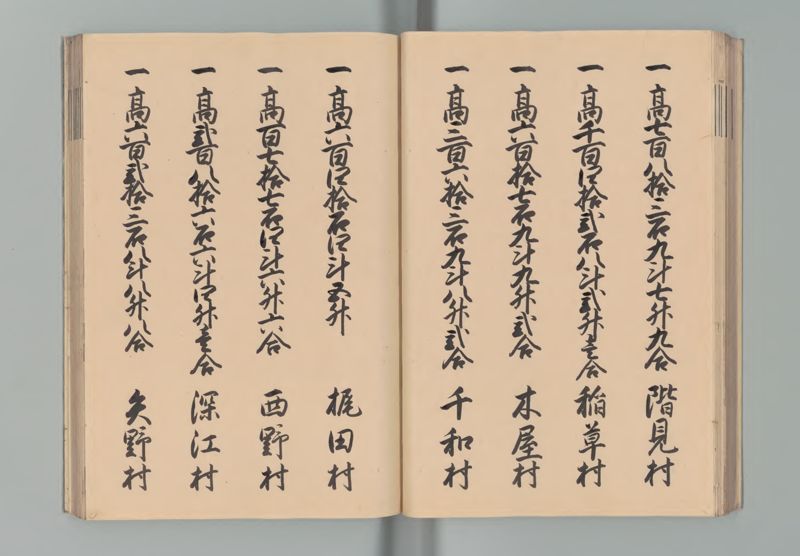 一高七百八拾三石九斗七升九合 階見村
一高千百四拾弐石八斗弐升壱合 稲草村
一高六百拾七石九斗九升弐合 木屋村
一高三百六拾三石九斗八升弐合 千和村
一高六百四拾石四斗五升 梶田村
一高百七拾七石四斗六升六合 西野村
一高弐百八拾六石六斗四升壱合 深江村
一高六百弐拾三石八斗八升八合 矢野村